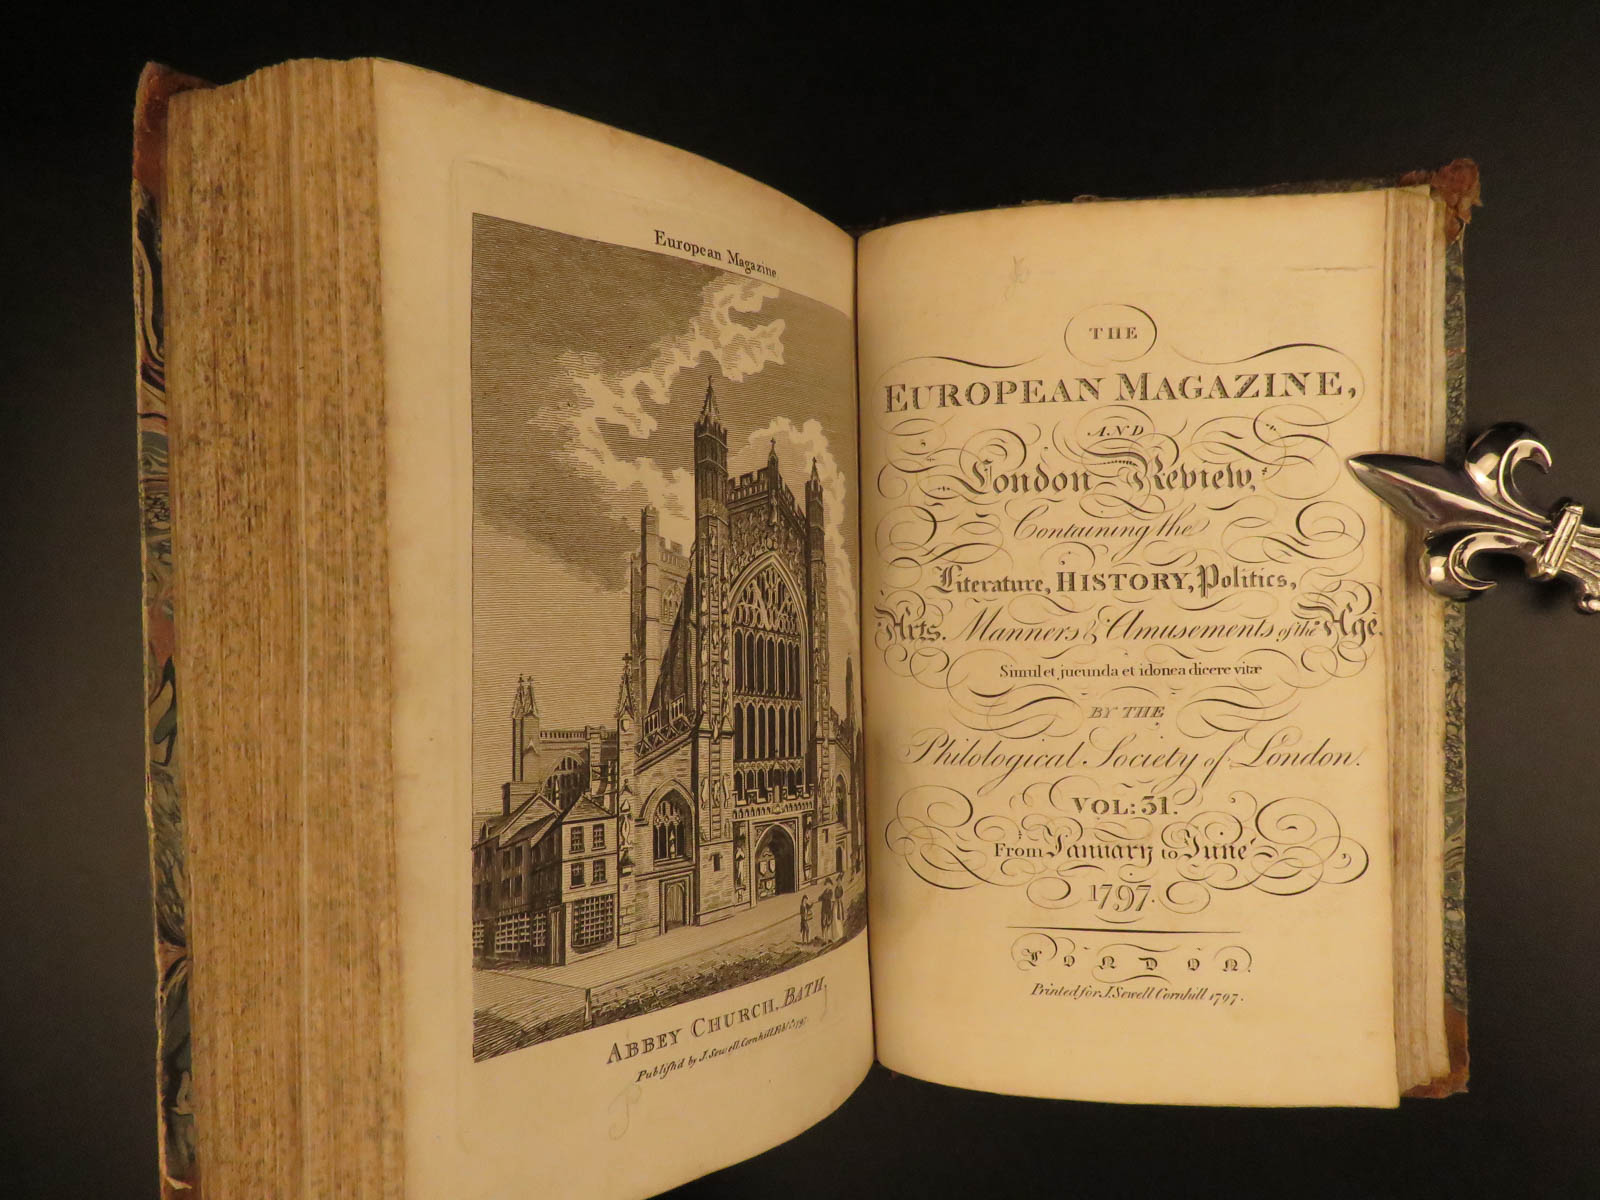 European Magazine
ABBEY CHURCH, BATH,
Publish'd by J. Sewell Cornhill
THE
EUROPEAN MAGAZINE,
AND
London Review,
Containing the
Literature, HISTORY, Politics,
Arts, Manners & Amusements of the Age.
Simul et jucunda et idonea dicere vitæ
BY THE
Philological Society of London.
VOL: 31.
From January to June
1797.
LONDON.
Printed for J. Sewell Cornhill 1797.